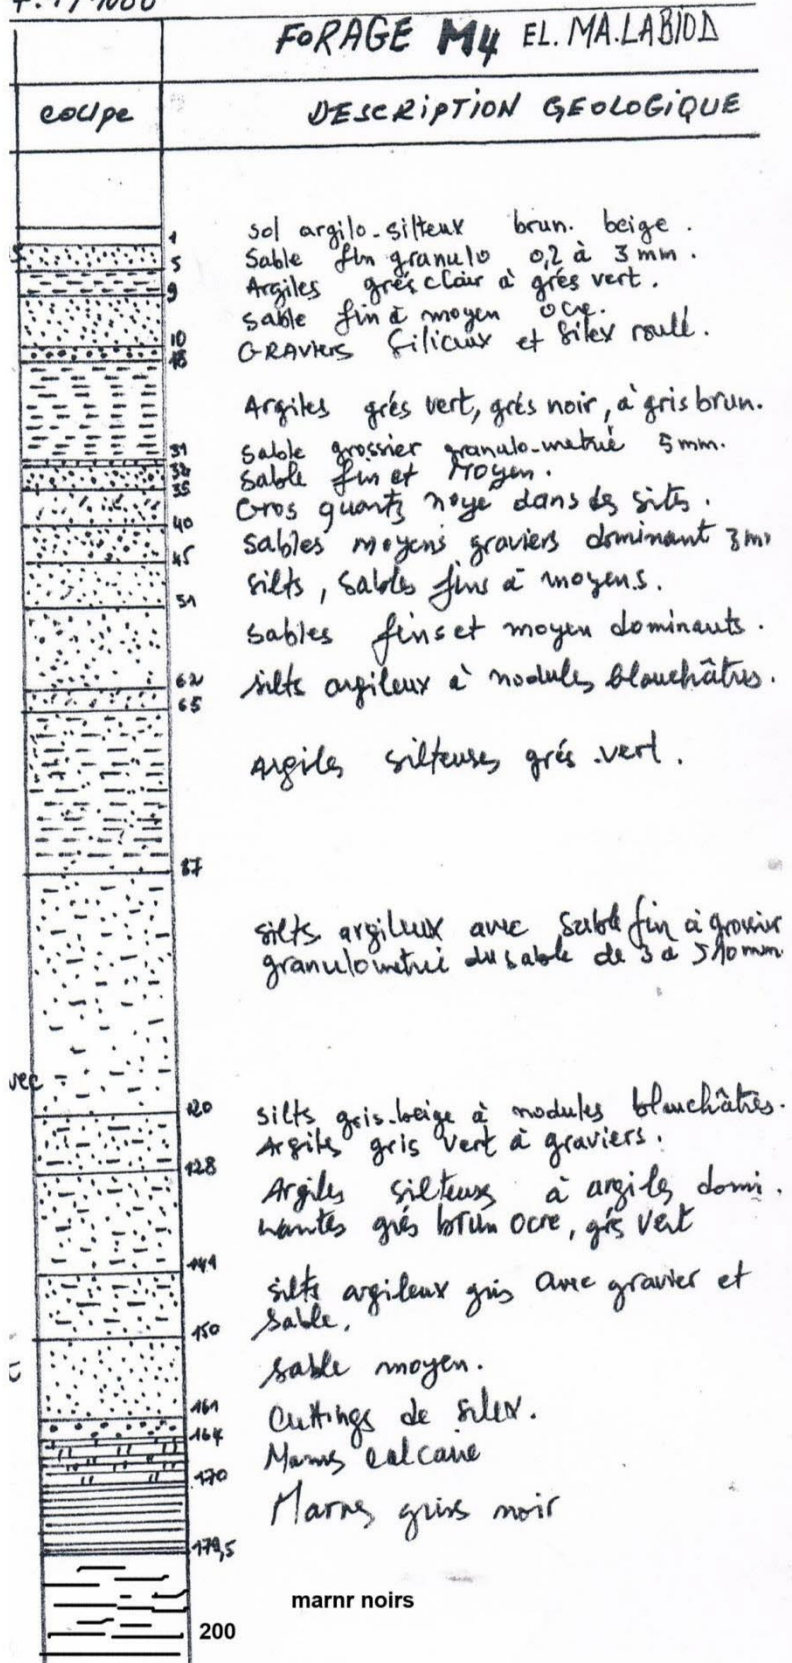 FORAGE M4 EL. MA. LABIOD
coupe
DESCRIPTION GEOLOGIQUE
1
sol argilo-silteux brun. beige.
Sable fin granulo 0,2 à 3 mm.
5
Argiles grés clair à grés vert.
9
sable fin à moyen ocre.
10
GRAVIERS Siliceux et Silex roulé.
18
Argiles grés vert, grés noir, à gris brun.
31
sable grossier granulo-metrie 5mm.
32
Sable fin et Moyen.
35
Gros quartz noyé dans des silts.
40
Sables moyens graviers dominant 3m
45
silts, Sables fins à moyens.
51
Sables fins et moyen dominants.
62
silts argileux à nodules blanchâtres.
65
Argiles silteuses grés vert.
87
silts argileux avec Sable fin à grossier
granulometrie du sable de 3 à 5/10mm
vec
120
silts gris-beige à nodules blanchâtres.
Argiles gris vert à graviers.
128
Argiles silteuses à argiles domi.
nantes grés brun ocre, grés vert
141
silts argileux gris avec gravier et
sable.
150
sable moyen.
161
Cuttings de Silex.
164
Marnes calcaire
170
Marnes grises noir
179,5
marnr noirs
200